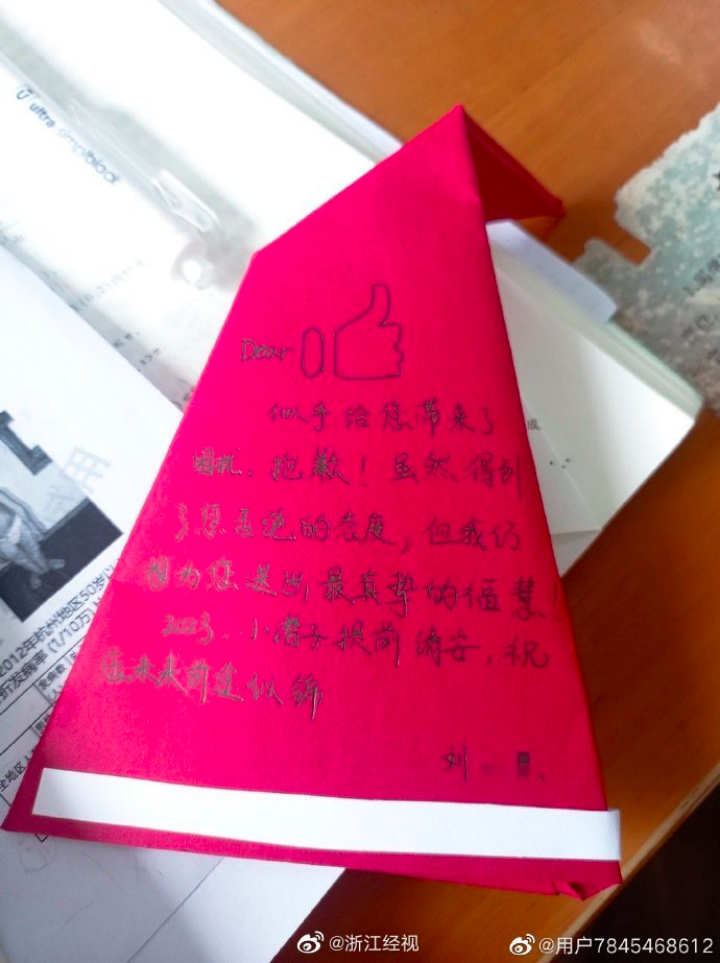 ultra simplblock
Dear
似乎给您带来了
困扰，抱歉！虽然得到
了您拒绝的态度，但我仍
想为您送 最真挚的
2023，小 子提前请安，祝
您未来前途似锦
刘
2012年杭州地区50岁以
发病率 (1/10万)
全地区
@浙江经视
@用户7845468612